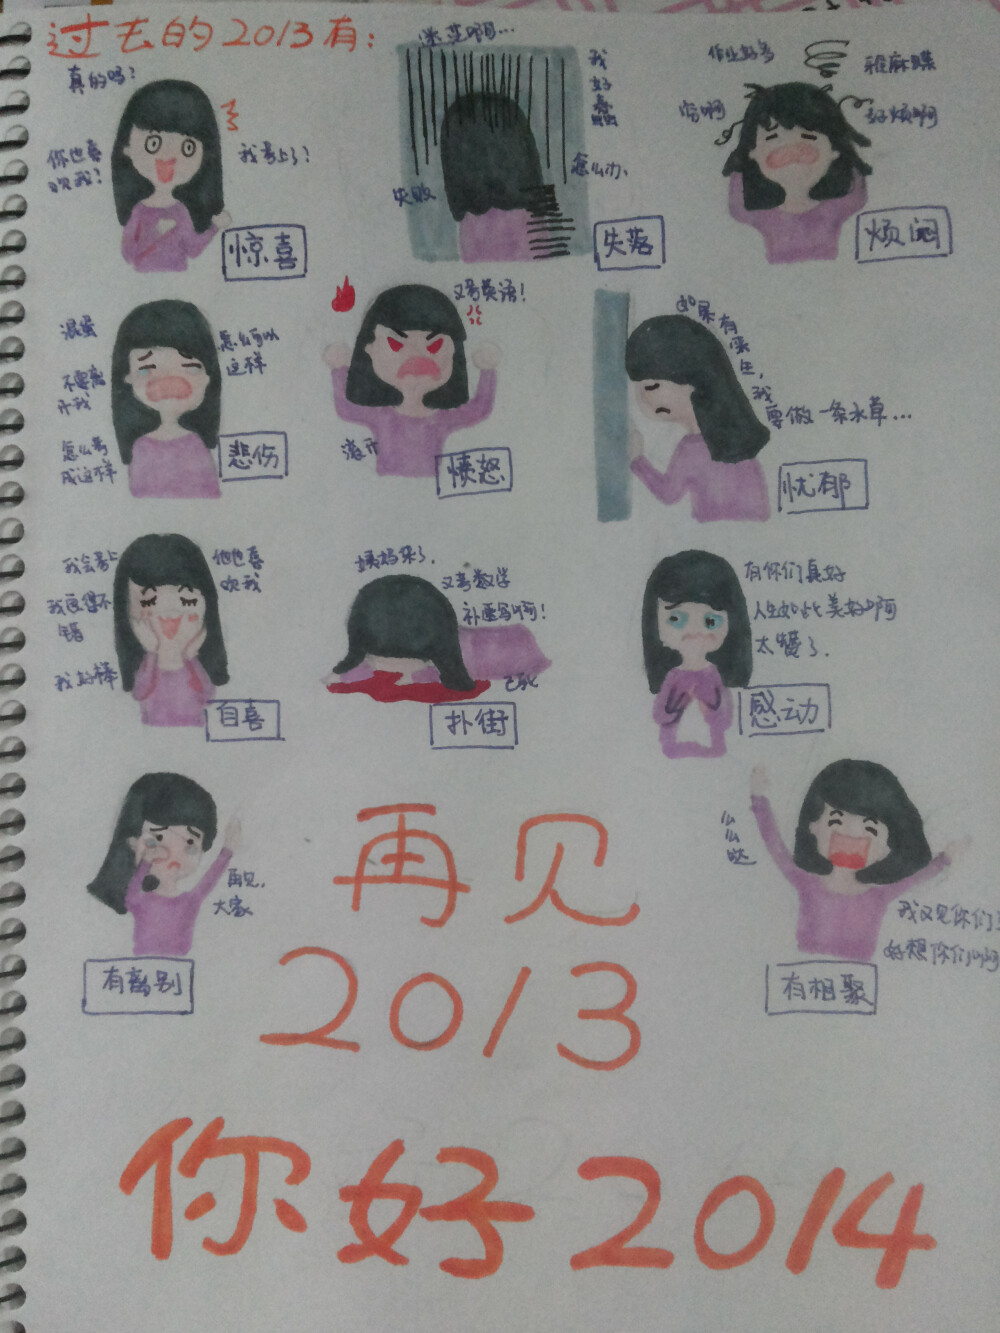 过去的2013有：
真的吗？
你也喜
欢我？
我考上了？
惊喜
迷茫啊…
我好蠢
怎么办、
失败
失落
作业好多
雅麻蝶
穷啊
好烦啊
烦闷
混蛋
不要离
开我
怎么考
成这样
怎么可以
这样
悲伤
又考英语！
滚币
愤怒
如果有来生，
我要做一条水草…
忧郁
我会考上
我长得不
错
我好棒
他也喜
欢我
自喜
姨妈来了.
又考数学
补厘写啊！
已死
扑街
有你们真好
人生如此美好啊
太赞了.
感动
再见，
大家
有离别
么么哒
我又见你们了
好想你们啊
有相聚
再见
2013
你好2014